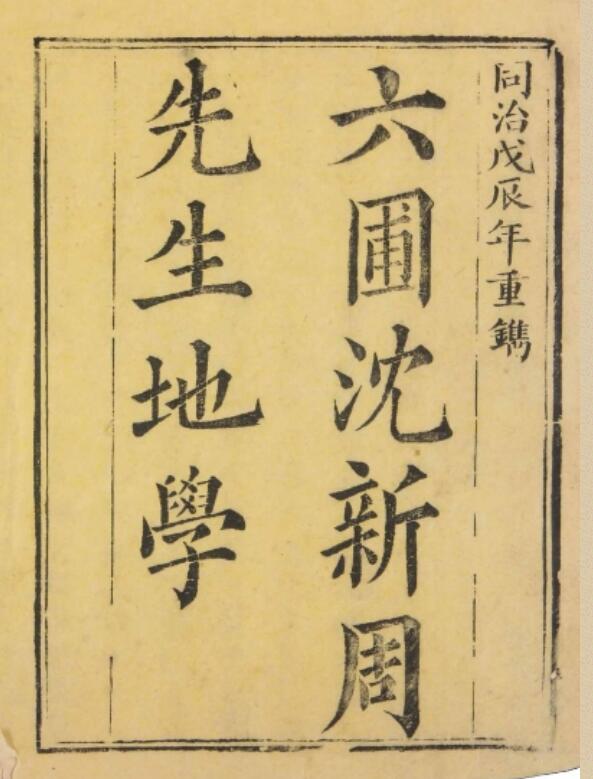 同治戊辰年重鐫
六圃沈新周
先生地學